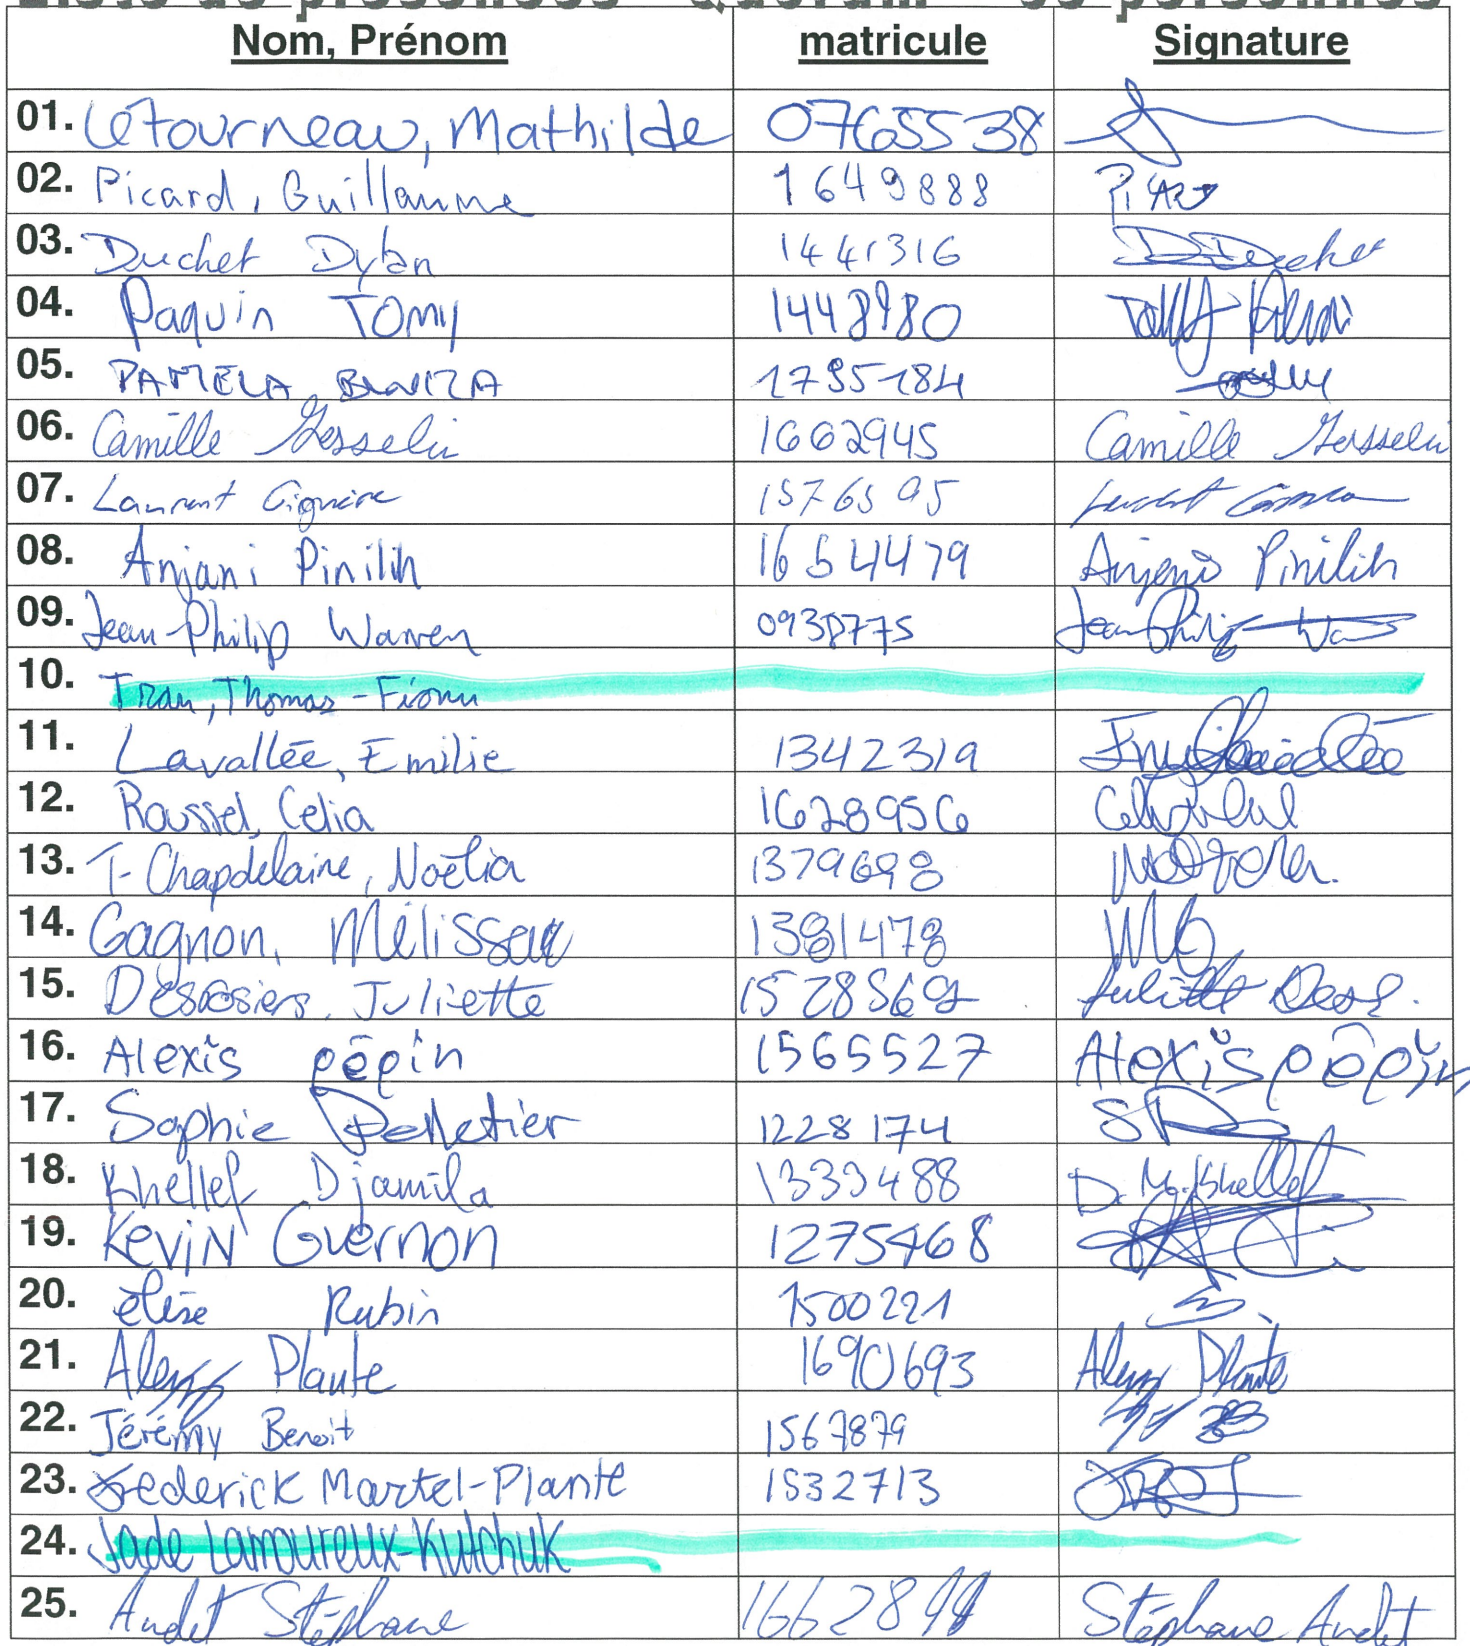 Liste de présences - Quorum
Nom, Prénom matricule Signature
01. Létourneau, Mathilde 0765538
02. Picard, Guillaume 1649888
03. Duchet Dylan 1441316 D Duchet
04. Paquin Tomy 1448980
05. PAMELA 1795184
06. Camille Gosselin 1662945 Camille Gosselin
07. Laurent Gignère 1576595
08. Anjani Pinilih 1654479 Anjani Pinilih
09. Jean-Philip Warren 0938775 Jean-Philip
10. Tran, Thomas-Fionn
11. Lavallée, Emilie 1342319
12. Roussel, Celia 1628956
13. T-Chapdelaine, Noëlia 1379698
14. Gagnon, Mélissa 1381478 MG
15. Desrosiers, Juliette Juliette Desr.
16. Alexis pépin 1565527 Alexis pépin
17. Sophie Pelletier 1228174
18. Khellef Djamila 1333488 D. M. Khellef
19. Kevin Guernon 1275468
20. élise Rubin 1500221
21. Alexy Plante 1690693 Alexy Plante
22. Jérémy Benoit 1567879
23. Frederick Martel-Plante 1532713
24. Jade Lamoureux-Kutchuk
25. Audet Stéphane Stéphane Audet